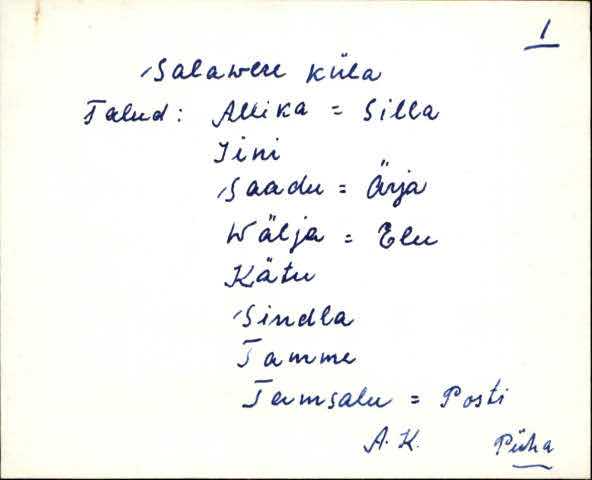 1
Salawere küla
Talud: Allika = Silla
Jini
Saadu = Ärja
Wälja = Elu
Kätu
Sindla
Tamme
Tamsalu = Posti
A. K. Püha